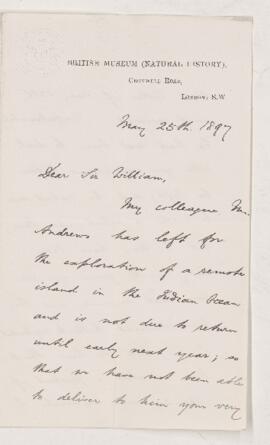 BRITISH MUSEUM (NATURAL HISTORY),
CROMWELL ROAD,
LONDON: S.W
May 25th. 1897
Dear Sir William,
My colleague Mr.
Andrews has left for
the exploration of a remote
island in the Indian Ocean
and is not due to return
until early next year; so
that we have not been able
to deliver to him your very